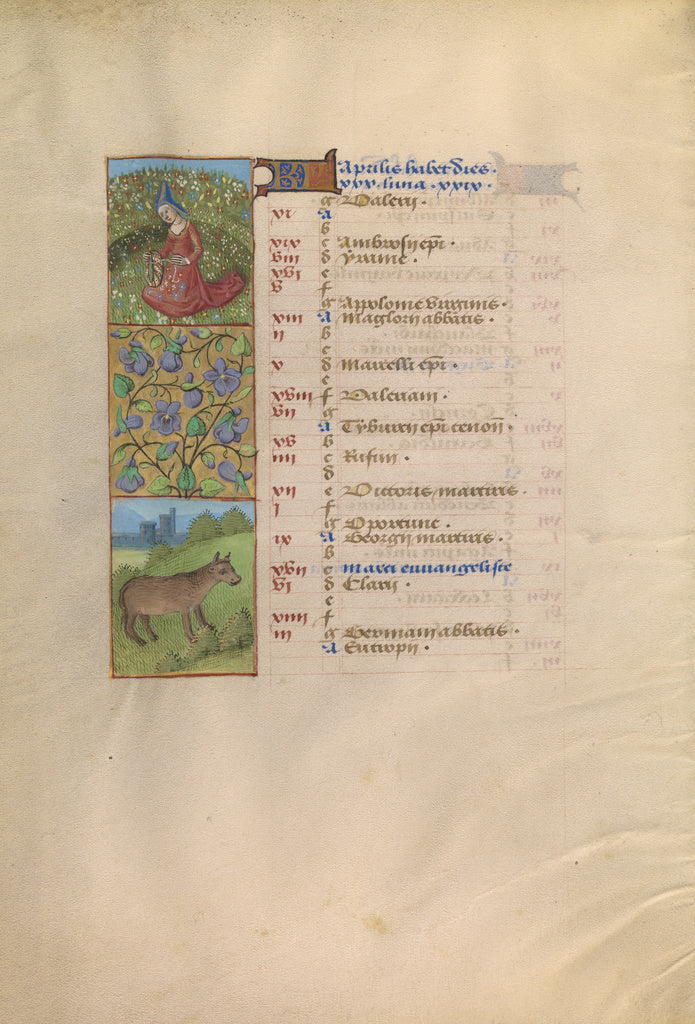 KL Aprilis habet dies.
xxx. luna. xxix.
g Valerii.
xi A
b
xix c Ambrosii epi.
viii d Yreine.
xvi e
v f
g Appolonie virginis.
xiii A Maglorii abbatis.
ii b
c
x d Marcelli epi.
e
xviii f Valeriani.
vii g
A Tyburcii epi cenon.
xv b
iiii c Rufini.
d
xii e Victoris martiris.
i f
g Oportune.
ix A Georgii martiris.
b
xvii c Marci euuangeliste
vi d Clarii.
e
xiiii f
iii g Germani abbatis.
A Eutropii.